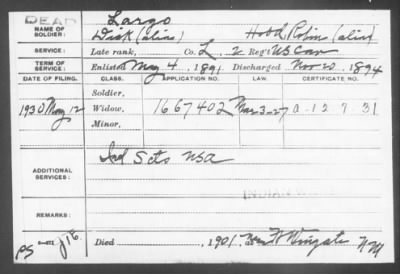 DEAD
Largo
NAME OF SOLDIER: Dick (alias) Hood, Robin (alias)
SERVICE: Late rank, Co. L, 2 Reg't US Cav
TERM OF SERVICE: Enlisted May 4, 1891 Discharged Nov 20, 1894
DATE OF FILING. CLASS. APPLICATION NO. LAW. CERTIFICATE NO.
Soldier,
1930 May 12 Widow, 1667402 Mar 3-27 a-12 7 31
Minor,
ADDITIONAL SERVICES: Ind Scts USA
INDIAN
REMARKS:
Died 1901, near Ft Wingate N M
PS